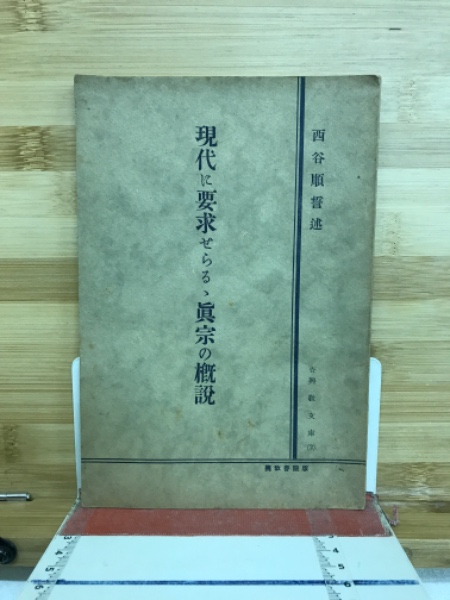 西谷順誓述
現代に要求せらるゝ眞宗の概説